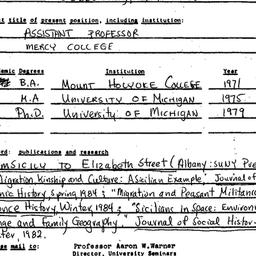 t title of present position, including institution:
ASSISTANT PROFESSOR
MERCY COLLEGE
emic Degrees Institution Year
B.A. MOUNT HOLYOKE COLLEGE 1971
M.A UNIVERSITY OF MICHIGAN 1975
Ph.D. University of MICHIGAN 1979
rd: publications and research
SICILY TO Elizabeth Street (Albany: SUNY Pre
Migration, Kinship and Culture: A Sicilian Example," Journal of
History, Spring 1984; "Migration and Peasant Militance
History, Winter, 1984; "Sicilians in Space: Environ
ge and Family Geography," Journal of Social Histor
ter, 1982.
se mail to: Professor Aaron W. Warner
Director, University Seminars